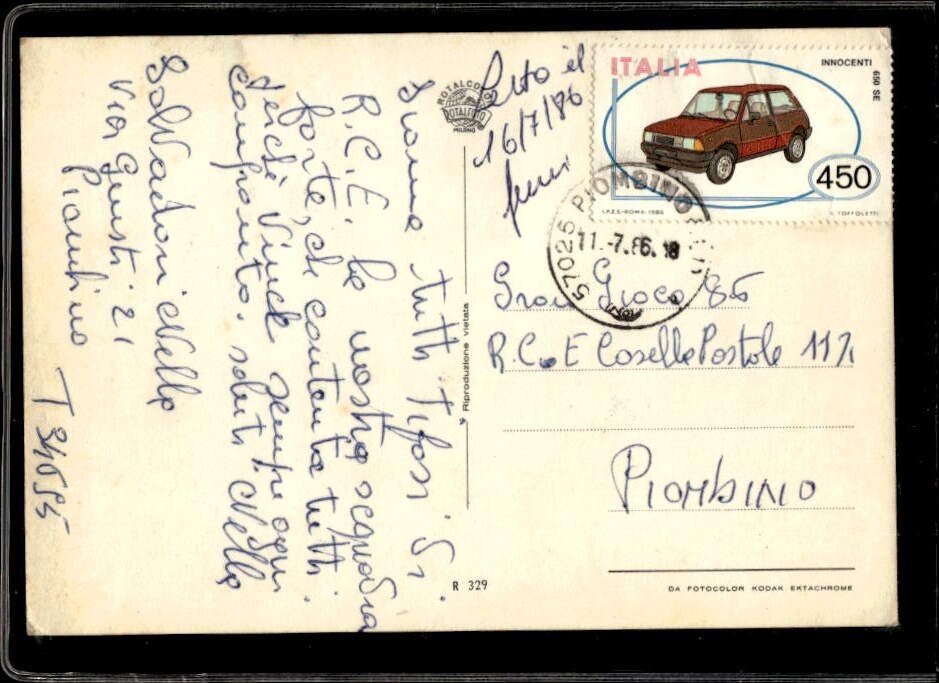 Letto il
16/7/86
ITALIA
INNOCENTI
650 SE
450
I.P.Z.S.-ROMA-1986
TOFFOLETTI
57025 PIOMBINO
11.-7.86.18
ROTALCOLOR
ROTALFOTO
MILANO
Siamo tutti tifosi di
R.C.E. la nostra squadra
forte, che contenta tutti.
Perchè vince sempre ogni
confronto. saluti Nello
Salvadori Nello
Via Giusti 21
Piombino
T 34655
* Riproduzione vietata
Gran Gioco 86
R.C.E Casella Postale 117
PIOMBINO
R 329
DA FOTOCOLOR KODAK EKTACHROME